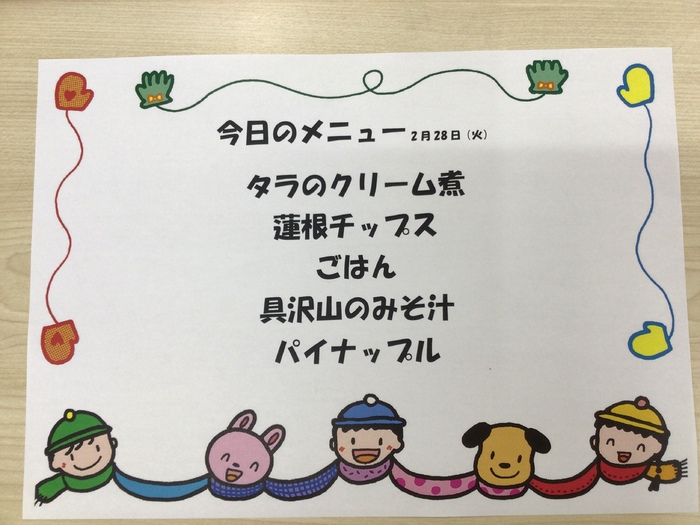 今日のメニュー 2月28日(火)
タラのクリーム煮
蓮根チップス
ごはん
具沢山のみそ汁
パイナップル